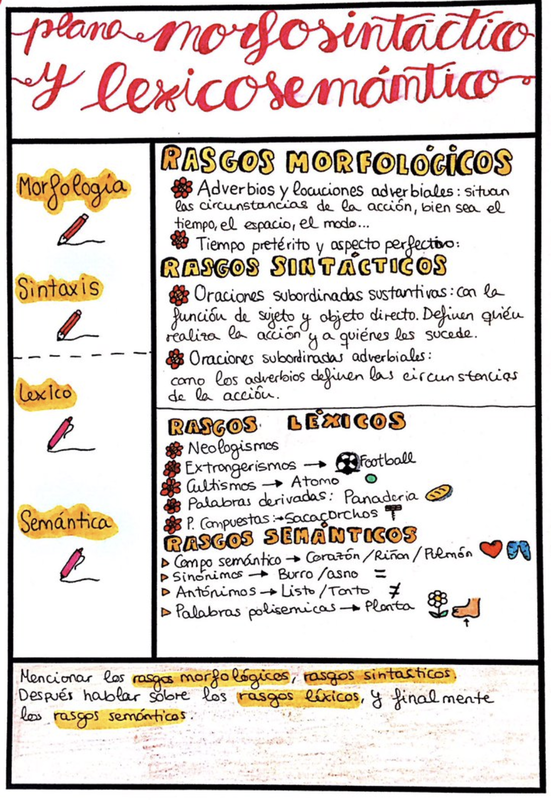 plano morfosintáctico
y lexicosemántico
Morfología
Sintaxis
Lexico
Semántica
RASGOS MORFOLÓGICOS
Adverbios y locuciones adverbiales: situan
las circunstancias de la acción, bien sea el
tiempo, el espacio, el modo...
Tiempo pretérito y aspecto perfectivo:
RASGOS SINTÁCTICOS
Oraciones subordinadas sustantivas: con la
función de sujeto y objeto directo. Definen quién
realiza la acción y a quiénes les sucede.
Oraciones subordinadas adverbiales:
como los adverbios definen las circunstancias
de la acción.
RASGOS LÉXICOS
Neologismos
Extrangerismos → Football
Cultismos → Atomo
Palabras derivadas: Panaderia
P. Compuestas: → Sacacorchos
RASGOS SEMÁNTICOS
Campo semántico → Corazón / Riñon / Pulmón
Sinónimos → Burro / asno =
Antónimos → Listo / Tonto ≠
Palabras polisemicas → Planta
Mencionar los rasgos morfológicos, rasgos sintacticos.
Después hablar sobre los rasgos léxicos, y finalmente
los rasgos semánticos.